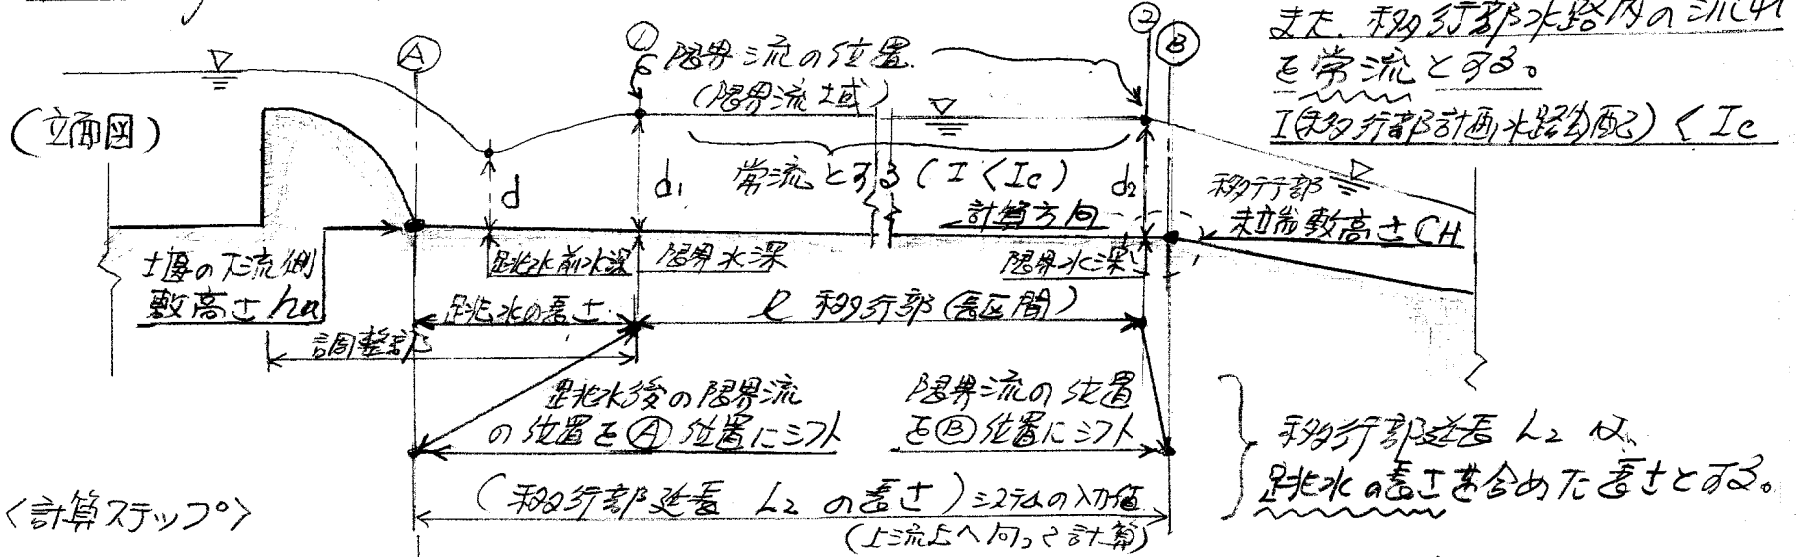 また、移行部水路内の流れ
を常流とする。
I(移行部計画水路勾配) < Ic
Ⓐ
①
限界流の位置
(限界流堰)
②
Ⓑ
(立面図)
d
d₁
常流とする (I < Ic)
d₂
計算方向
移行部
末端敷高さCH
堰の下流側
敷高さha
跳水前水深
限界水深
限界水深
跳水の長さ
ℓ 移行部(長区間)
調整部
跳水後の限界流
の位置をⒶ位置にシフト
限界流の位置
をⒷ位置にシフト
移行部延長 L₂ は、
跳水の長さを含めた長さとする。
(移行部延長 L₂ の長さ) システムの入力値
(上流上へ向って計算)
<計算ステップ>